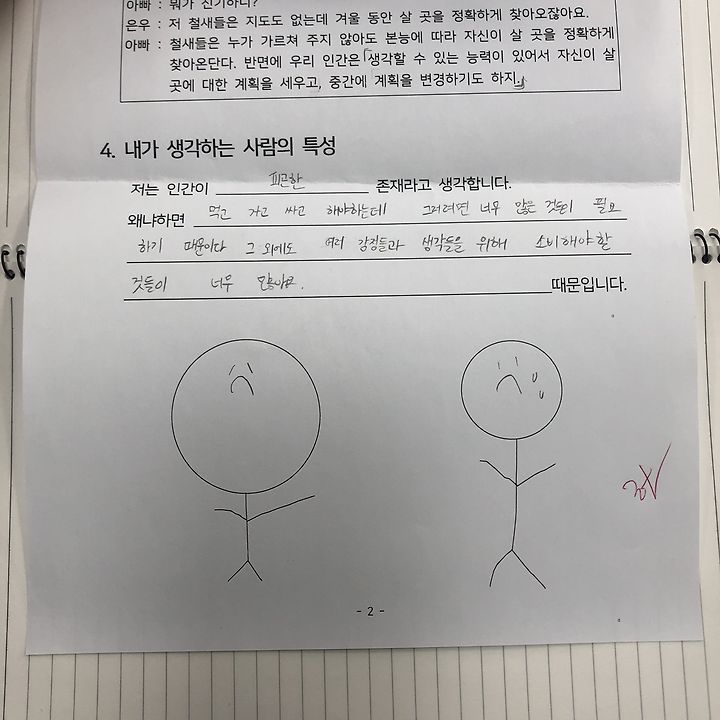 아빠 : 뭐가 신기하니?
은우 : 저 철새들은 지도도 없는데 겨울 동안 살 곳을 정확하게 찾아오잖아요.
아빠 : 철새들은 누가 가르쳐 주지 않아도 본능에 따라 자신이 살 곳을 정확하게
찾아온단다. 반면에 우리 인간은「생각할 수 있는 능력이 있어서 자신이 살
곳에 대한 계획을 세우고, 중간에 계획을 변경하기도 하지.」
4. 내가 생각하는 사람의 특성
저는 인간이 피곤한 존재라고 생각합니다.
왜냐하면 먹고 자고 싸고 해야하는데 그러려면 너무 많은 것들이 필요
하기 때문이다 그 외에도 여러 감정들과 생각들을 위해 소비해야할
것들이 너무 많아요. 때문입니다.
- 2 -